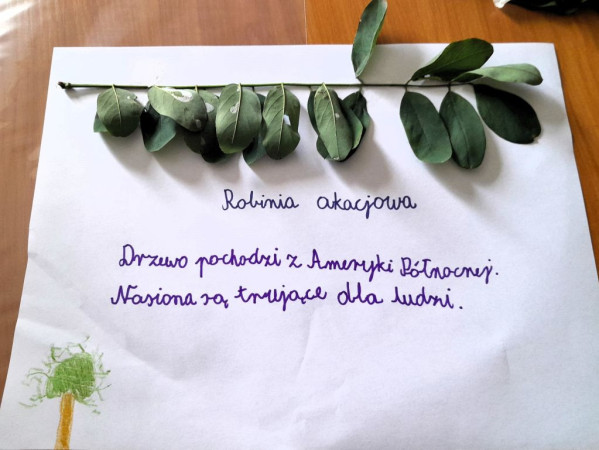 Robinia akacjowa
Drzewo pochodzi z Ameryki Północnej.
Nasiona są trujące dla ludzi.